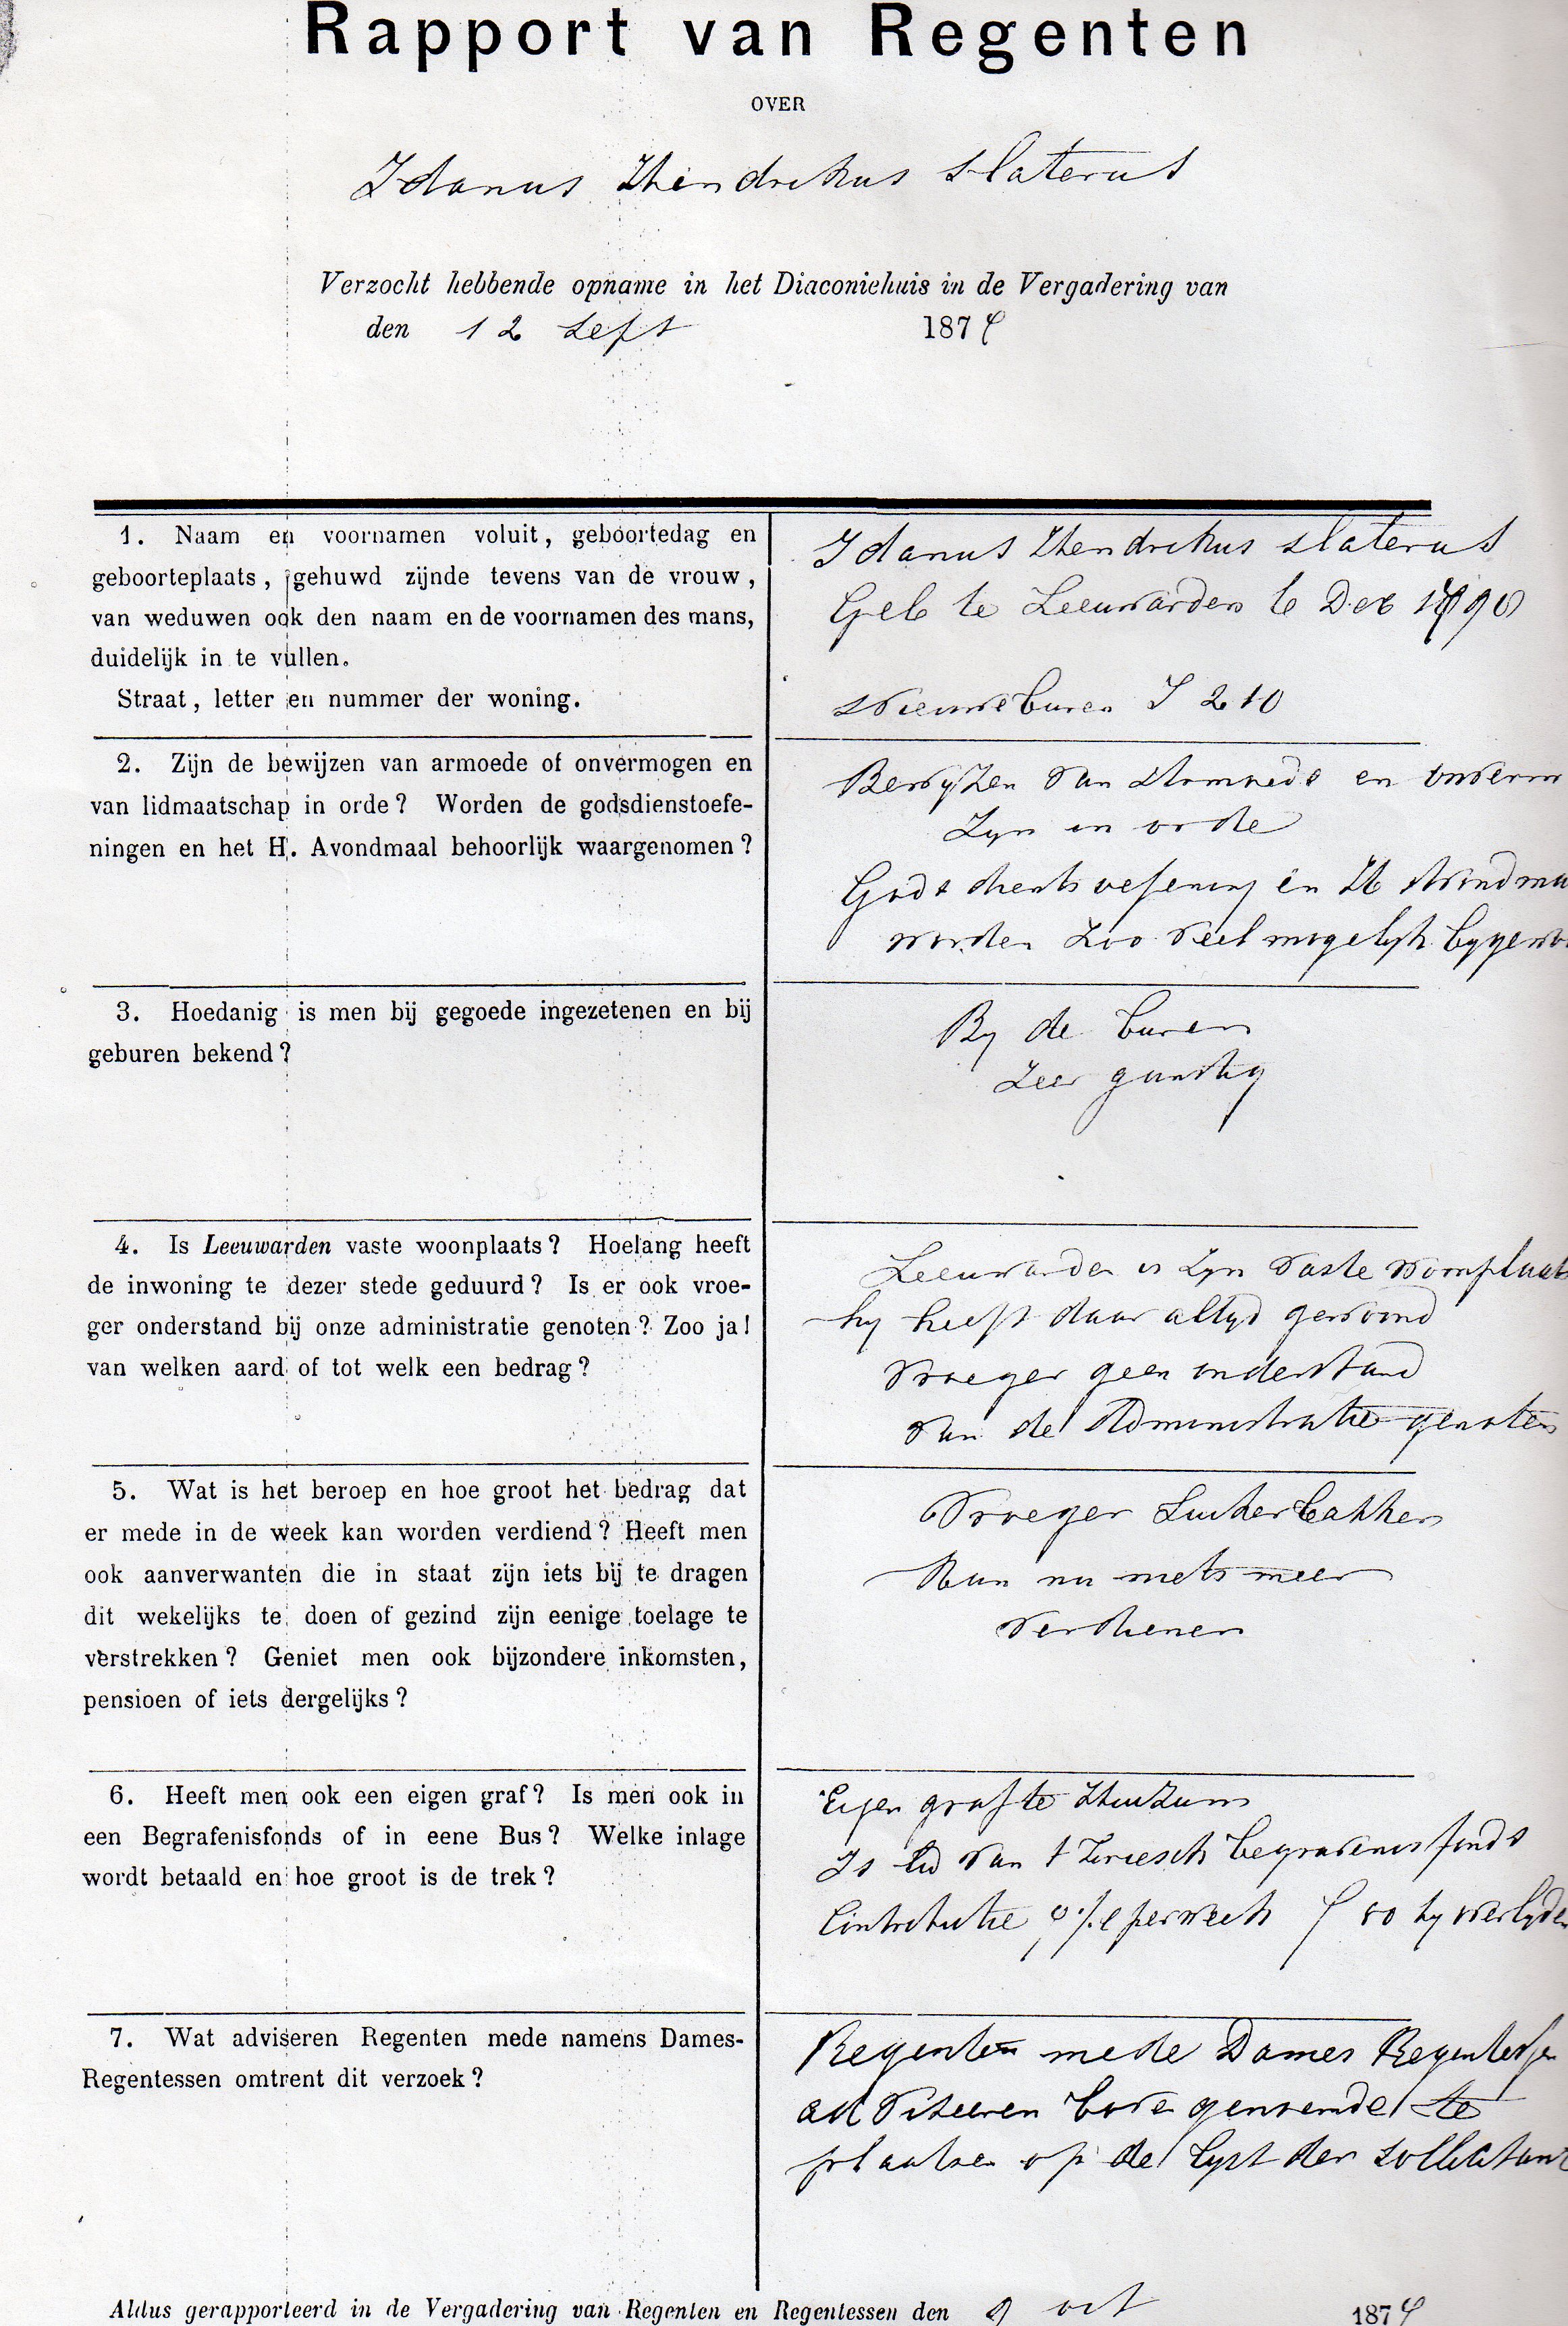 Rapport van Regenten
OVER
Idanus Hendrikus Slaterus
Verzocht hebbende opname in het Diaconiehuis in de Vergadering van
den 12 Sept 1874
1. Naam en voornamen voluit, geboortedag en
geboorteplaats, gehuwd zijnde tevens van de vrouw,
van weduwen ook den naam en de voornamen des mans,
duidelijk in te vullen.
Straat, letter en nummer der woning.
Idanus Hendrikus Slaterus
Geb te Leeuwarden 6 Dec 1790
Nieuweburen I 210
2. Zijn de bewijzen van armoede of onvermogen en
van lidmaatschap in orde? Worden de godsdienstoefe-
ningen en het H. Avondmaal behoorlijk waargenomen?
Bewyzen van Armoede en onverm
Zyn in orde
Godsdienstoefening en H Avondma
worden zoo veel mogelyk bygewo
3. Hoedanig is men bij gegoede ingezetenen en bij
geburen bekend?
By de buren
Zeer gunstig
4. Is Leeuwarden vaste woonplaats? Hoelang heeft
de inwoning te dezer stede geduurd? Is er ook vroe-
ger onderstand bij onze administratie genoten? Zoo ja!
van welken aard of tot welk een bedrag?
Leeuwarden is Zyn vaste woonplaats
hy heeft daar altyd gewoond
Vroeger geen onderstand
van de Administratie genoten
5. Wat is het beroep en hoe groot het bedrag dat
er mede in de week kan worden verdiend? Heeft men
ook aanverwanten die in staat zijn iets bij te dragen
dit wekelijks te doen of gezind zijn eenige toelage te
verstrekken? Geniet men ook bijzondere inkomsten,
pensioen of iets dergelijks?
Vroeger Suikerbakker
Kan nu niets meer
verdienen
6. Heeft men ook een eigen graf? Is men ook in
een Begrafenisfonds of in eene Bus? Welke inlage
wordt betaald en hoe groot is de trek?
Eigen graf te Huizum
Is lid van t Friesch begravenis fonds
Contributie per week f 50 by overlyden
7. Wat adviseren Regenten mede namens Dames-
Regentessen omtrent dit verzoek?
Regenten mede Dames Regentessen
adviseeren bovengenoemde te
plaatsen op de lyst der sollicitant
Aldus gerapporteerd in de Vergadering van Regenten en Regentessen den 9 oct 1874